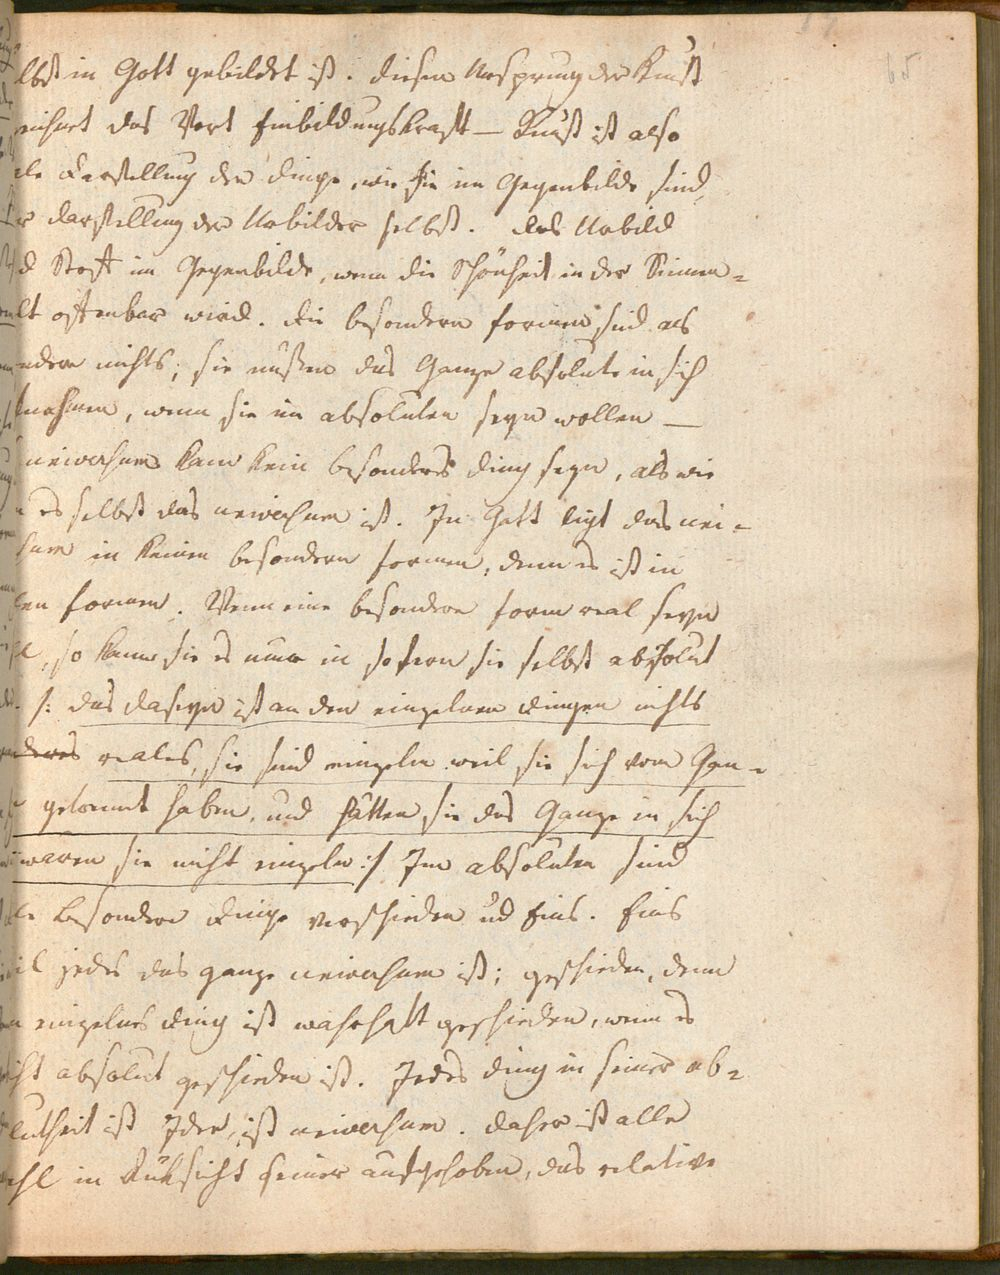 65
lbst in Gott gebildet ist. diesen Ursprung der Kunst
das Wort Einbildungskraft — Kunst ist also
Darstellung der Dinge, wie sie im Gegenbilde sind,
r Darstellung der Urbilder selbst. das Urbild
d Stoff im Gegenbilde, wenn die Schönheit in der Sinnen=
lt offenbar wird. die besondern formen sind als
ndere nichts; sie müßen das Ganze absolute in sich
nehmen, wenn sie im absoluten seyn wollen —
universum kann kein besonderes ding seyn, als wie
es selbst das universum ist. In Gott ligt das uni=
sum in keinen besondern formen, denn es ist in
len formen. Wenn eine besondere form real seyn
l, so kann sie es nur in sofern sie selbst absolut
/: das daseyn ist an den einzelnen dingen nichts
deres reales, sie sind einzeln weil sie sich vom Gan=
getrennt haben, und hätten sie das Ganze in sich
waren sie nicht einzeln :/ Im absoluten sind
le besondere dinge verschieden ud Eins. Eins
il jedes das ganze universum ist; geschieden, denn
einzelnes ding ist wahrhaft geschieden, wenn es
cht absolut geschieden ist. Jedes ding in seiner ab=
lutheit ist Idee, ist universum. daher ist alle
ahl in Rüksicht seiner aufgehoben, das relative